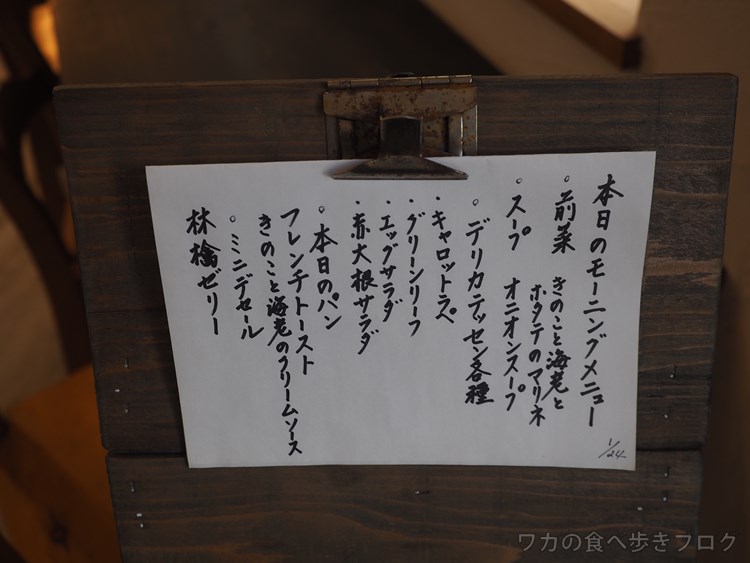 本日のモーニングメニュー
。前菜 きのこと海老と
ホタテのマリネ
。スープ オニオンスープ
。デリカテッセン各種
・キャロットラペ
・グリーンリーフ
・エッグサラダ
・赤大根サラダ
。本日のパン
フレンチトースト
きのこと海老のクリームソース
。ミニデセール
林檎ゼリー
1/24
ワカの食べ歩きブログ